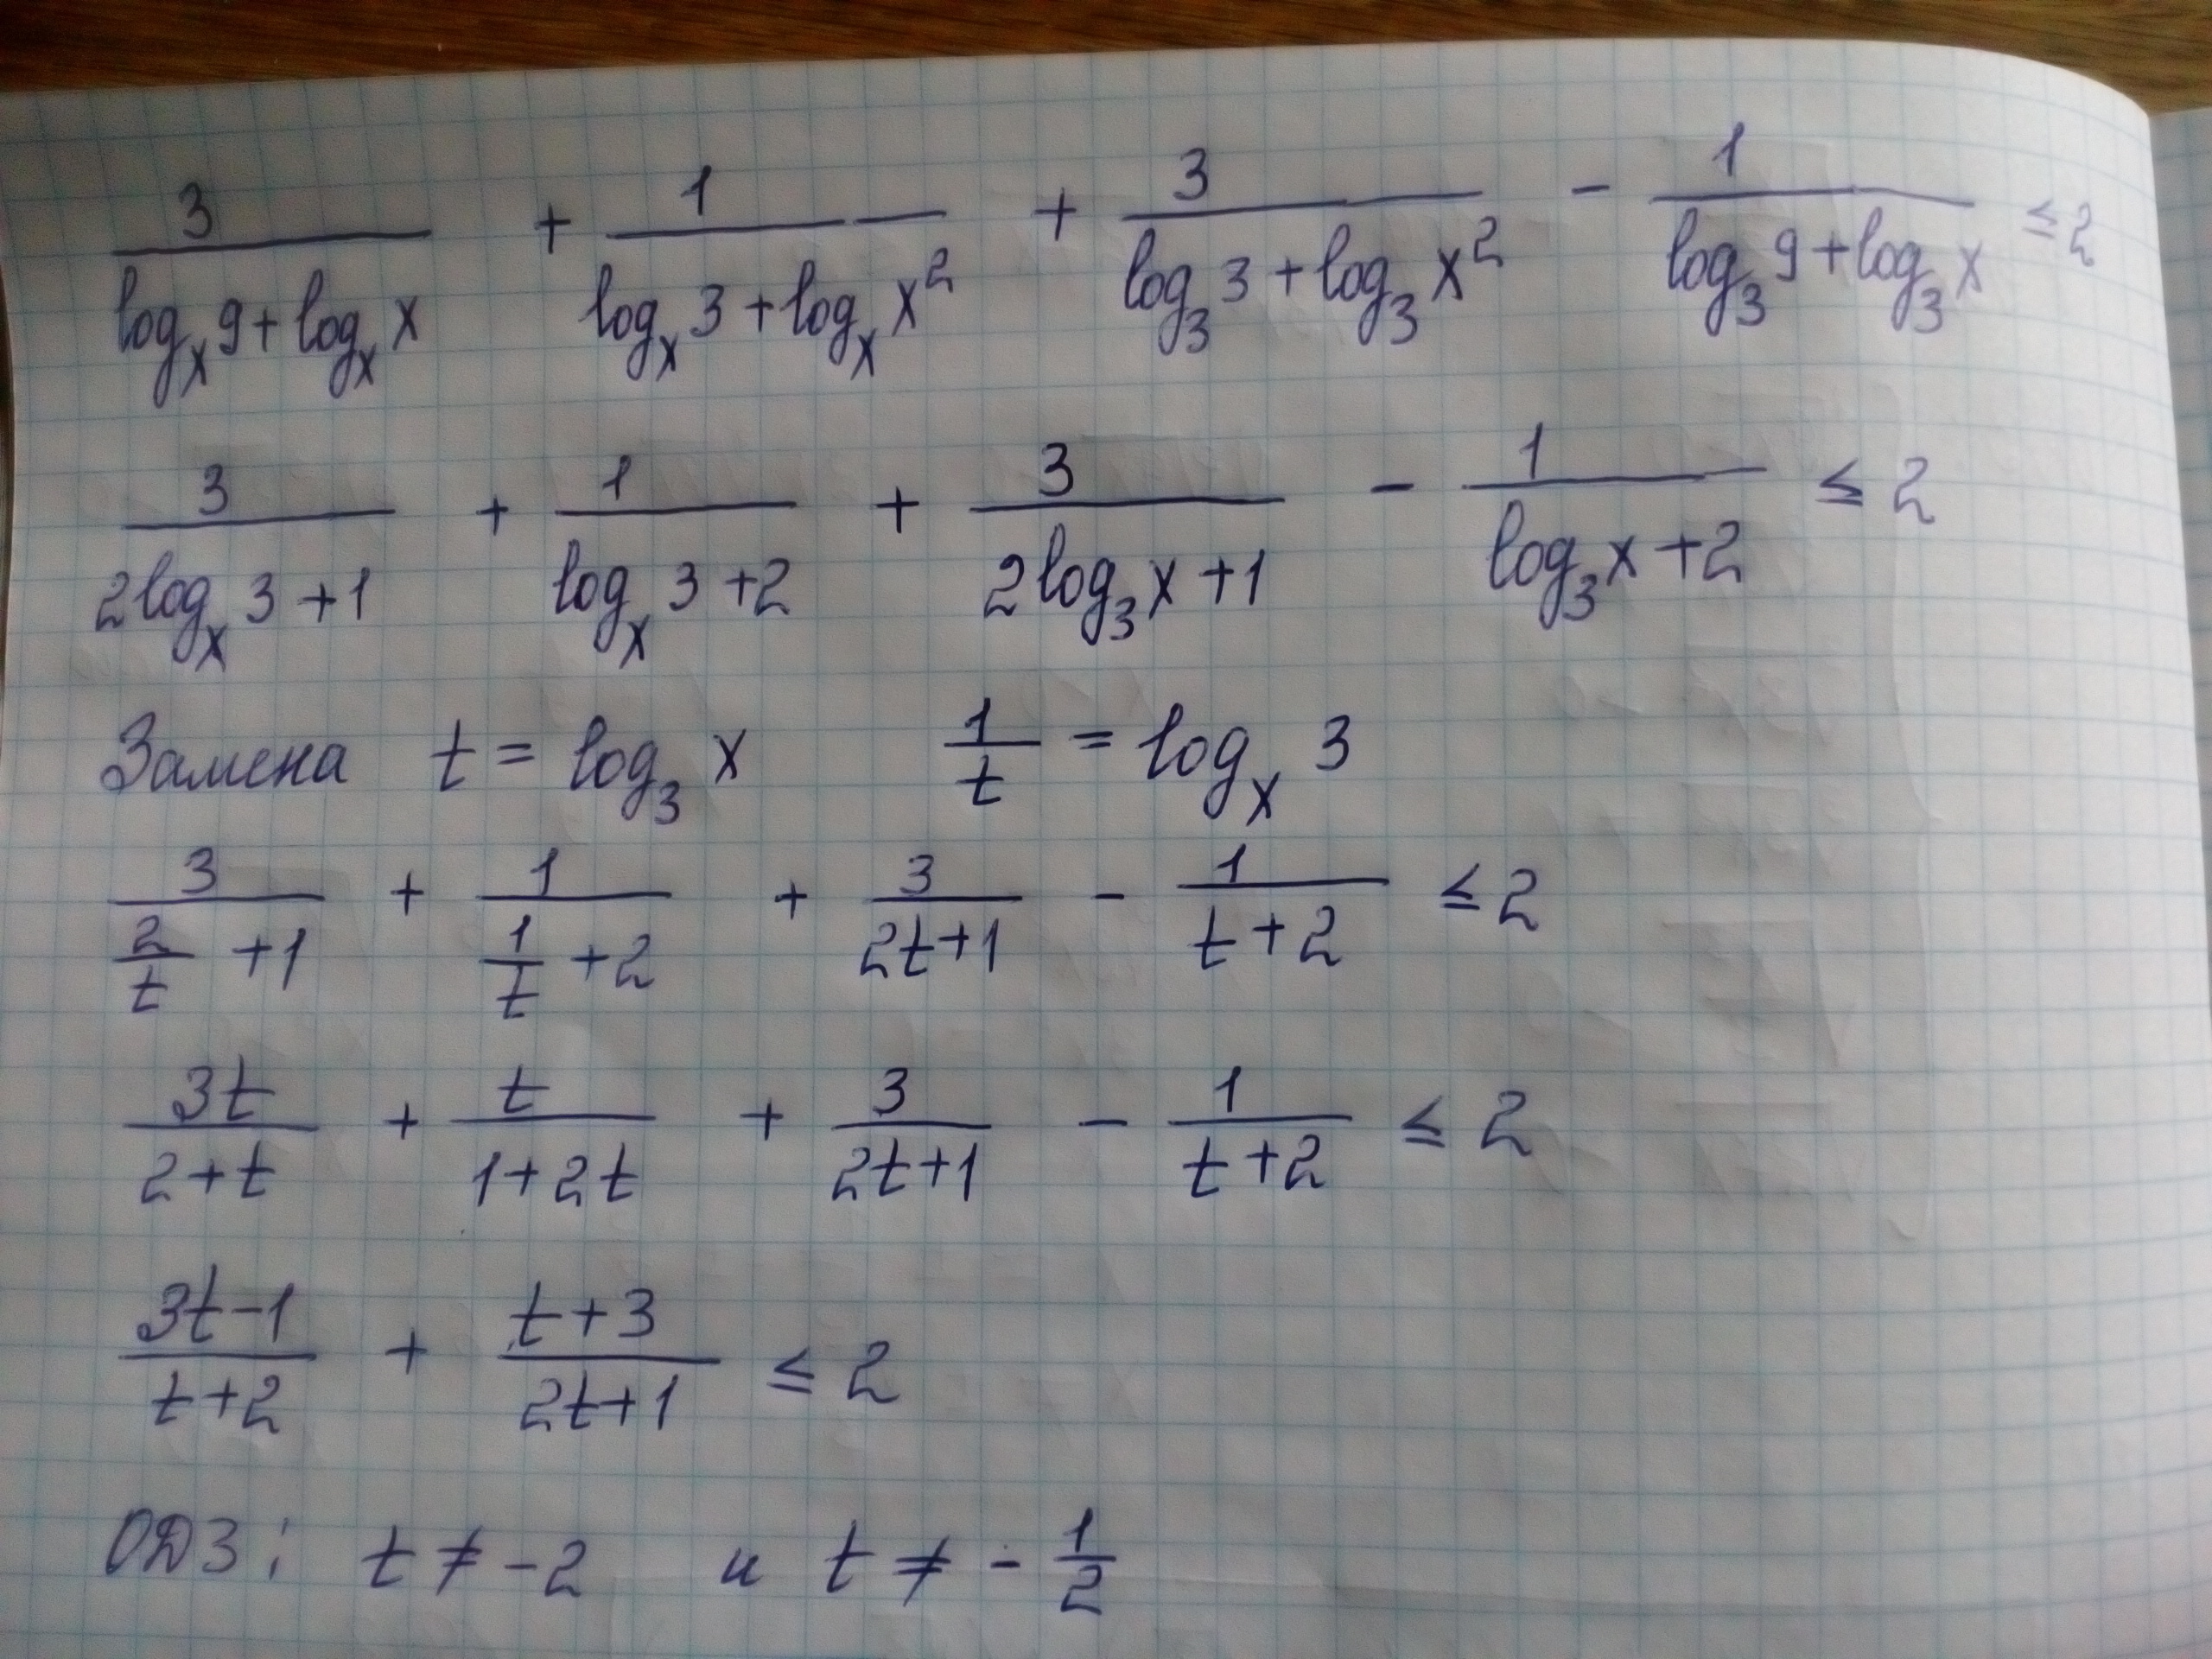 3/(log_x 9 + log_x x) + 1/(log_x 3 + log_x x²) + 3/(log_3 3 + log_3 x²) - 1/(log_3 9 + log_3 x) ≤ 2
3/(2log_x 3 + 1) + 1/(log_x 3 + 2) + 3/(2log_3 x + 1) - 1/(log_3 x + 2) ≤ 2
Замена t = log_3 x 1/t = log_x 3
3/(2/t + 1) + 1/(1/t + 2) + 3/(2t+1) - 1/(t+2) ≤ 2
3t/(2+t) + t/(1+2t) + 3/(2t+1) - 1/(t+2) ≤ 2
(3t-1)/(t+2) + (t+3)/(2t+1) ≤ 2
ОДЗ: t ≠ -2 и t ≠ -1/2